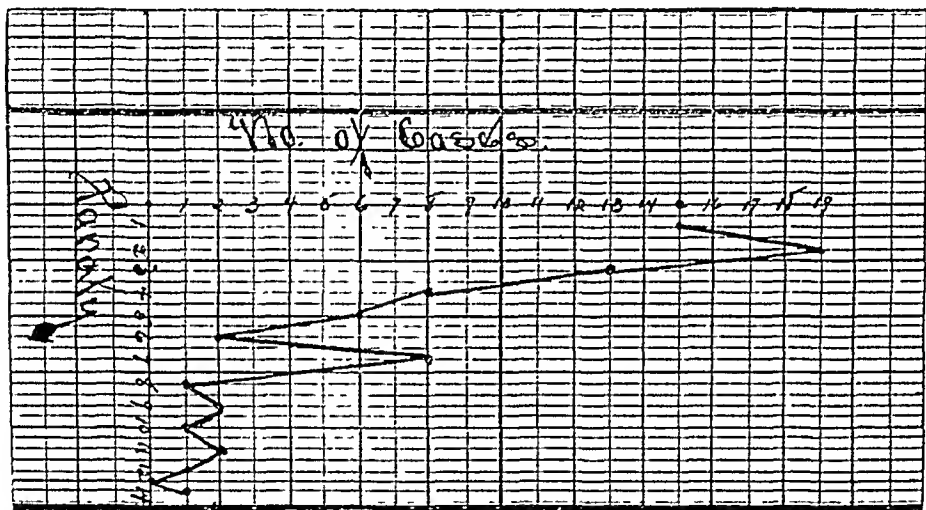 No. of Cases.
1 2 3 4 5 6 7 8 9 10 11 12 13 14 16 17 18 19
1
2
3
4
5
6
7
8
9
10
11
12